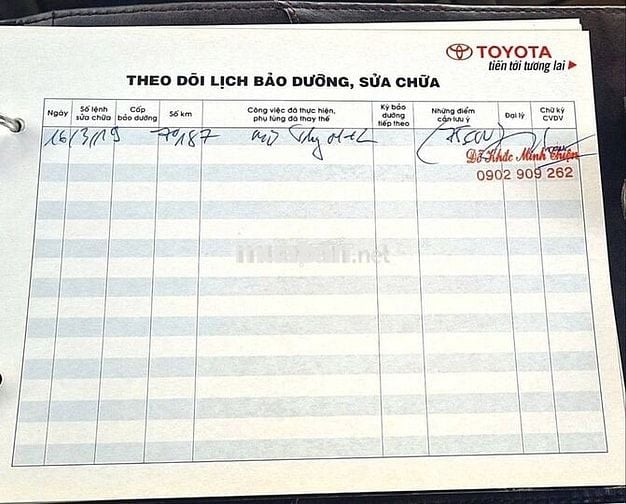 TOYOTA
tiến tới tương lai
THEO DÕI LỊCH BẢO DƯỠNG, SỬA CHỮA
Ngày
Số lệnh
sửa chữa
Cấp
bảo dưỡng
Số km
Công việc đã thực hiện,
phụ tùng đã thay thế
Kỳ bảo
dưỡng
tiếp theo
Những điểm
cần lưu ý
Đại lý
Chữ ký
CVDV
16/3/19
70187
Đỗ Khắc Minh Thiện
0902 909 262
.net